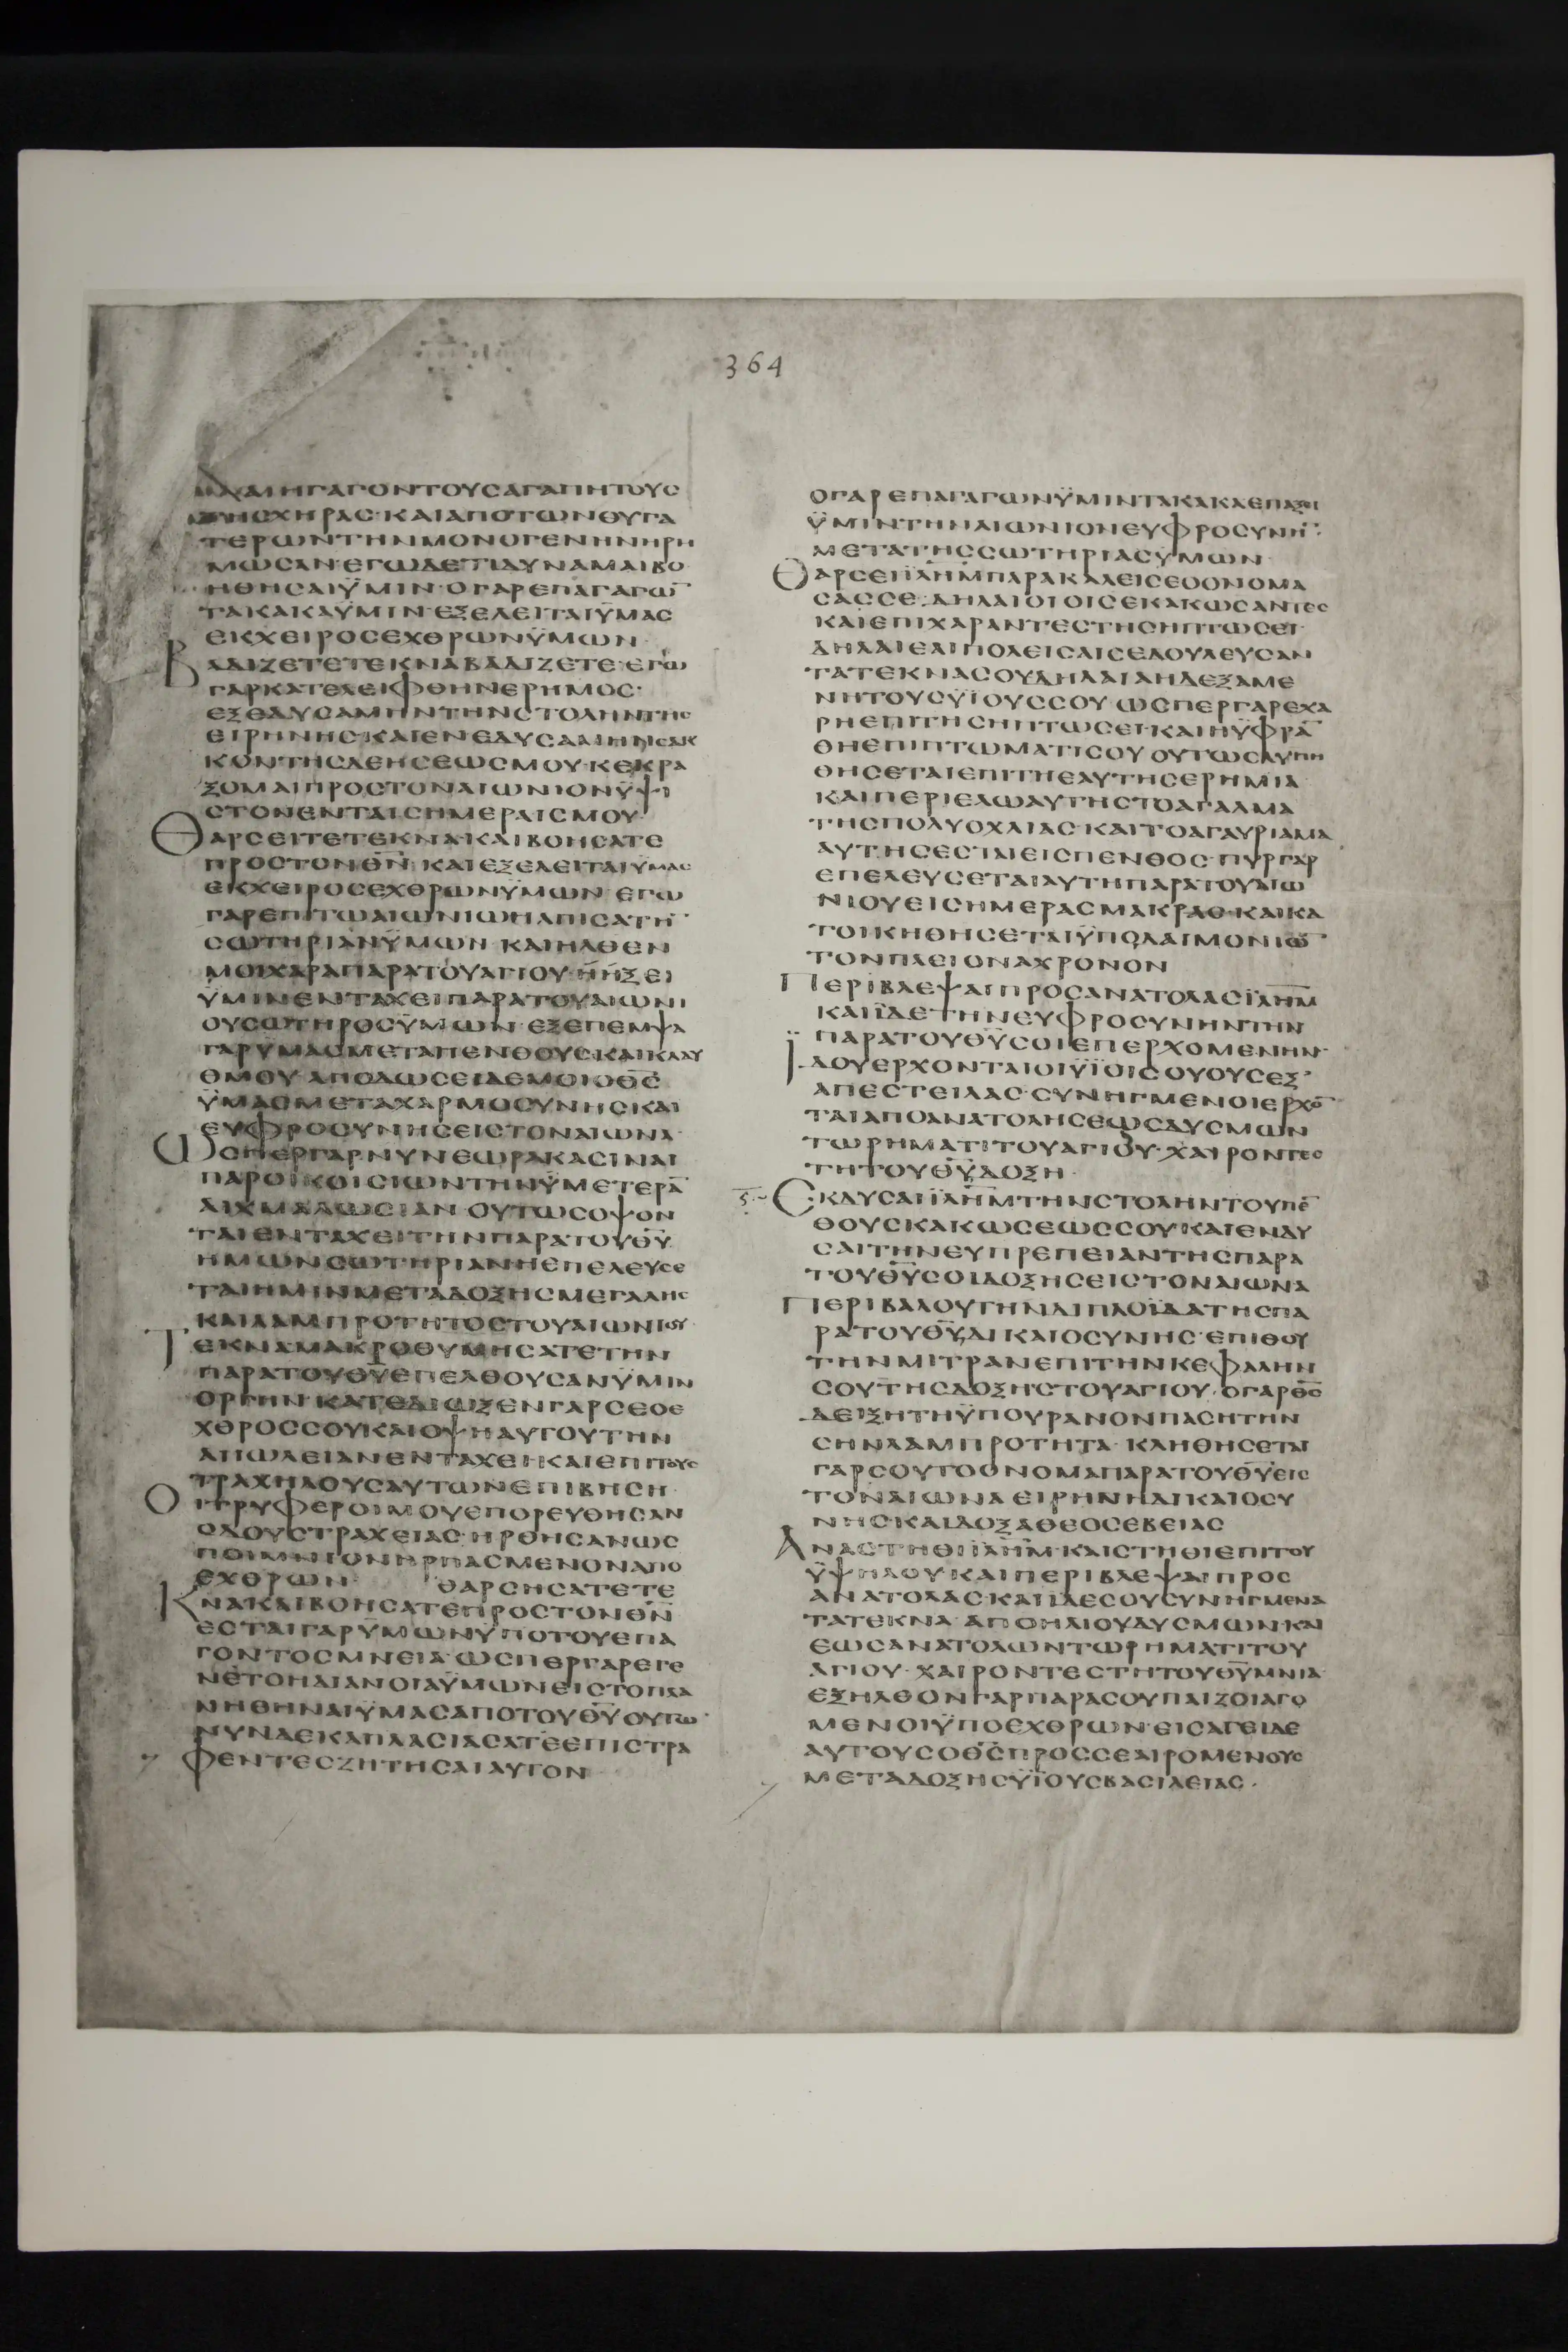 364
ΚΑΙΑΠΗΓΑΓΟΝΤΟΥΣΑΓΑΠΗΤΟΥΣ
ΤΗΣΧΗΡΑΣ·ΚΑΙΑΠΟΤΩΝΘΥΓΑ
ΤΕΡΩΝΤΗΝΜΟΝΟΓΕΝΗΝΗΡΗ
ΜΩΣΑΝ·ΕΓΩΔΕΤΙΔΥΝΑΜΑΙΒΟ
ΗΘΗΣΑΙΫΜΙΝ·ΟΓΑΡΕΠΑΓΑΓΩ̅
ΤΑΚΑΚΑΫΜΙΝ·ΕΞΕΛΕΙΤΑΙΫΜΑΣ
ΕΚΧΕΙΡΟΣΕΧΘΡΩΝΫΜΩΝ·
ΒΑΔΙΖΕΤΕΤΕΚΝΑΒΑΔΙΖΕΤΕ·ΕΓΩ
ΓΑΡΚΑΤΕΛΕΙΦΘΗΝΕΡΗΜΟΣ·
ΕΞΕΔΥΣΑΜΗΝΤΗΝΣΤΟΛΗΝΤΗΣ
ΕΙΡΗΝΗΣ·ΚΑΙΕΝΕΔΥΣΑΜΗΝΣΑΚ
ΚΟΝΤΗΣΔΕΗΣΕΩΣΜΟΥ·ΚΕΚΡΑ
ΞΟΜΑΙΠΡΟΣΤΟΝΑΙΩΝΙΟΝΫΨΙ
ΣΤΟΝΕΝΤΑΙΣΗΜΕΡΑΙΣΜΟΥ·
ΘΑΡΣΕΙΤΕΤΕΚΝΑΚΑΙΒΟΗΣΑΤΕ
ΠΡΟΣΤΟΝΘ̅Ν̅·ΚΑΙΕΞΕΛΕΙΤΑΙΫΜΑΣ
ΕΚΧΕΙΡΟΣΕΧΘΡΩΝΫΜΩΝ·ΕΓΩ
ΓΑΡΕΠΙΤΩΑΙΩΝΙΩΗΛΠΙΣΑΤΗ̅
ΣΩΤΗΡΙΑΝΫΜΩΝ·ΚΑΙΗΛΘΕΝ
ΜΟΙΧΑΡΑΠΑΡΑΤΟΥΑΓΙΟΥ·ΗΗΞΕΙ
ΫΜΙΝΕΝΤΑΧΕΙΠΑΡΑΤΟΥΑΙΩΝΙ
ΟΥΣΩΤΗΡΟΣΫΜΩΝ·ΕΞΕΠΕΜΨΑ
ΓΑΡΫΜΑΣΜΕΤΑΠΕΝΘΟΥΣΚΑΙΚΛΑΥ
ΘΜΟΥ·ΑΠΟΔΩΣΕΙΔΕΜΟΙΟΘ̅Σ̅
ΫΜΑΣΜΕΤΑΧΑΡΜΟΣΥΝΗΣΚΑΙ
ΕΥΦΡΟΣΥΝΗΣΕΙΣΤΟΝΑΙΩΝΑ·
ΩΣΠΕΡΓΑΡΝΥΝΕΩΡΑΚΑΣΙΝΑΙ
ΠΑΡΟΙΚΟΙΣΙΩΝΤΗΝΫΜΕΤΕΡΑ̅
ΑΙΧΜΑΛΩΣΙΑΝ·ΟΥΤΩΣΟΨΟΝ
ΤΑΙΕΝΤΑΧΕΙΤΗΝΠΑΡΑΤΟΥΘ̅Υ̅
ΗΜΩΝΣΩΤΗΡΙΑΝΗΕΠΕΛΕΥΣΕ
ΤΑΙΗΜΙΝΜΕΤΑΔΟΞΗΣΜΕΓΑΛΗΣ
ΚΑΙΛΑΜΠΡΟΤΗΤΟΣΤΟΥΑΙΩΝΙΟΥ
ΤΕΚΝΑΜΑΚΡΟΘΥΜΗΣΑΤΕΤΗΝ
ΠΑΡΑΤΟΥΘ̅Υ̅ΕΠΕΛΘΟΥΣΑΝΫΜΙΝ
ΟΡΓΗΝ·ΚΑΤΕΔΙΩΞΕΝΓΑΡΣΕΟΕ
ΧΘΡΟΣΣΟΥΚΑΙΟΨΗΑΥΤΟΥΤΗΝ
ΑΠΩΛΕΙΑΝΕΝΤΑΧΕΙ·ΚΑΙΕΠΙΤΟΥΣ
ΤΡΑΧΗΛΟΥΣΑΥΤΩΝΕΠΙΒΗΣΗ·
ΟΙΤΡΥΦΕΡΟΙΜΟΥΕΠΟΡΕΥΘΗΣΑΝ
ΟΔΟΥΣΤΡΑΧΕΙΑΣ·ΗΡΘΗΣΑΝΩΣ
ΠΟΙΜΝΙΟΝΗΡΠΑΣΜΕΝΟΝΑΠΟ
ΕΧΘΡΩΝ· ΘΑΡΣΗΣΑΤΕΤΕ
ΚΝΑΚΑΙΒΟΗΣΑΤΕΠΡΟΣΤΟΝΘ̅Ν̅
ΕΣΤΑΙΓΑΡΫΜΩΝΫΠΟΤΟΥΕΠΑ
ΓΟΝΤΟΣΜΝΕΙΑ·ΩΣΠΕΡΓΑΡΕΓΕ
ΝΕΤΟΗΔΙΑΝΟΙΑΫΜΩΝΕΙΣΤΟΠΛΑ
ΝΗΘΗΝΑΙΫΜΑΣΑΠΟΤΟΥΘ̅Υ̅ΟΥΤΩ
ΝΥΝΔΕΚΑΠΛΑΣΙΑΣΑΤΕΕΠΙΣΤΡΑ
ΦΕΝΤΕΣΖΗΤΗΣΑΙΑΥΤΟΝ
ΟΓΑΡΕΠΑΓΑΓΩΝΫΜΙΝΤΑΚΑΚΑΕΠΑΞΕΙ
ΫΜΙΝΤΗΝΑΙΩΝΙΟΝΕΥΦΡΟΣΥΝΗ̅
ΜΕΤΑΤΗΣΣΩΤΗΡΙΑΣΫΜΩΝ·
ΘΑΡΣΕΙΪΛ̅Η̅Μ̅ΠΑΡΑΚΑΛΕΙΣΕΟΟΝΟΜΑ
ΣΑΣΣΕ·ΔΗΛΑΙΟΙΟΙΣΕΚΑΚΩΣΑΝΤΕΣ
ΚΑΙΕΠΙΧΑΡΑΝΤΕΣΤΗΣΗΠΤΩΣΕΙ·
ΔΗΛΑΙΕΑΙΠΟΛΕΙΣΑΙΣΕΔΟΥΛΕΥΣΑΝ
ΤΑΤΕΚΝΑΣΟΥΔΗΛΑΙΑΗΔΕΞΑΜΕ
ΝΗΤΟΥΣΫΙΟΥΣΣΟΥ·ΩΣΠΕΡΓΑΡΕΧΑ
ΡΗΕΠΙΤΗΣΗΠΤΩΣΕΙ·ΚΑΙΗΫΦΡΑ̅
ΘΗΕΠΙΠΤΩΜΑΤΙΣΟΥ·ΟΥΤΩΣΛΥΠΗ
ΘΗΣΕΤΑΙΕΠΙΤΗΕΑΥΤΗΣΕΡΗΜΙΑ
ΚΑΙΠΕΡΙΕΛΩΑΥΤΗΣΤΟΑΓΑΛΜΑ
ΤΗΣΠΟΛΥΟΧΛΙΑΣ·ΚΑΙΤΟΑΓΑΥΡΙΑΜΑ
ΑΥΤΗΣΕΣΤΑΙΕΙΣΠΕΝΘΟΣ·ΠΥΡΓΑΡ
ΕΠΕΛΕΥΣΕΤΑΙΑΥΤΗΠΑΡΑΤΟΥΑΙΩ
ΝΙΟΥΕΙΣΗΜΕΡΑΣΜΑΚΡΑΣ·ΚΑΙΚΑ
ΤΟΙΚΗΘΗΣΕΤΑΙΫΠΟΔΑΙΜΟΝΙΩ̅
ΤΟΝΠΛΕΙΟΝΑΧΡΟΝΟΝ
ΠΕΡΙΒΛΕΨΑΙΠΡΟΣΑΝΑΤΟΛΑΣΪΛ̅Η̅Μ̅
ΚΑΙΪΔΕΤΗΝΕΥΦΡΟΣΥΝΗΝΤΗΝ
ΠΑΡΑΤΟΥΘ̅Υ̅ΣΟΙΕΠΕΡΧΟΜΕΝΗΝ·
ΪΔΟΥΕΡΧΟΝΤΑΙΟΙΫΪΟΙΣΟΥΟΥΣΕΞ
ΑΠΕΣΤΕΙΛΑΣ·ΣΥΝΗΓΜΕΝΟΙΕΡΧΟ̅
ΤΑΙΑΠΟΑΝΑΤΟΛΗΣΕΩΣΔΥΣΜΩΝ
ΤΩΡΗΜΑΤΙΤΟΥΑΓΙΟΥ·ΧΑΙΡΟΝΤΕΣ
ΤΗΤΟΥΘ̅Υ̅ΔΟΞΗ·
ΕΚΔΥΣΑΙΪΛ̅Η̅Μ̅ΤΗΝΣΤΟΛΗΝΤΟΥΠΕ̅
ΘΟΥΣΚΑΚΩΣΕΩΣΣΟΥ·ΚΑΙΕΝΔΥ
ΣΑΙΤΗΝΕΥΠΡΕΠΕΙΑΝΤΗΣΠΑΡΑ
ΤΟΥΘ̅Υ̅ΣΟΙΔΟΞΗΣΕΙΣΤΟΝΑΙΩΝΑ
ΠΕΡΙΒΑΛΟΥΤΗΝΔΙΠΛΟΪΔΑΤΗΣΠΑ
ΡΑΤΟΥΘ̅Υ̅ΔΙΚΑΙΟΣΥΝΗΣ·ΕΠΙΘΟΥ
ΤΗΝΜΙΤΡΑΝΕΠΙΤΗΝΚΕΦΑΛΗΝ
ΣΟΥΤΗΣΔΟΞΗΣΤΟΥΑΓΙΟΥ·ΟΓΑΡΘ̅Σ̅
ΔΕΙΞΗΤΗΫΠΟΥΡΑΝΟΝΠΑΣΗΤΗΝ
ΣΗΝΛΑΜΠΡΟΤΗΤΑ·ΚΛΗΘΗΣΕΤΑΙ
ΓΑΡΣΟΥΤΟΟΝΟΜΑΠΑΡΑΤΟΥΘ̅Υ̅ΕΙΣ
ΤΟΝΑΙΩΝΑΕΙΡΗΝΗΔΙΚΑΙΟΣΥ
ΝΗΣ·ΚΑΙΔΟΞΑΘΕΟΣΕΒΕΙΑΣ
ΑΝΑΣΤΗΘΙΪΛ̅Η̅Μ̅·ΚΑΙΣΤΗΘΙΕΠΙΤΟΥ
ΫΨΗΛΟΥ·ΚΑΙΠΕΡΙΒΛΕΨΑΙΠΡΟΣ
ΑΝΑΤΟΛΑΣ·ΚΑΙΪΔΕΣΟΥΣΥΝΗΓΜΕΝΑ
ΤΑΤΕΚΝΑ·ΑΠΟΗΛΙΟΥΔΥΣΜΩΝΚΑΙ
ΕΩΣΑΝΑΤΟΛΩΝΤΩΡΗΜΑΤΙΤΟΥ
ΑΓΙΟΥ·ΧΑΙΡΟΝΤΕΣΤΗΤΟΥΘ̅Υ̅ΜΝΙΑ·
ΕΞΗΛΘΟΝΓΑΡΠΑΡΑΣΟΥΠΑΙΖΟΙΑΓΟ
ΜΕΝΟΙΫΠΟΕΧΘΡΩΝ·ΕΙΣΑΓΕΙΔΕ
ΑΥΤΟΥΣΟΘ̅Σ̅ΠΡΟΣΣΕΑΙΡΟΜΕΝΟΥΣ
ΜΕΤΑΔΟΞΗΣΫΪΟΥΣΒΑΣΙΛΕΙΑΣ·